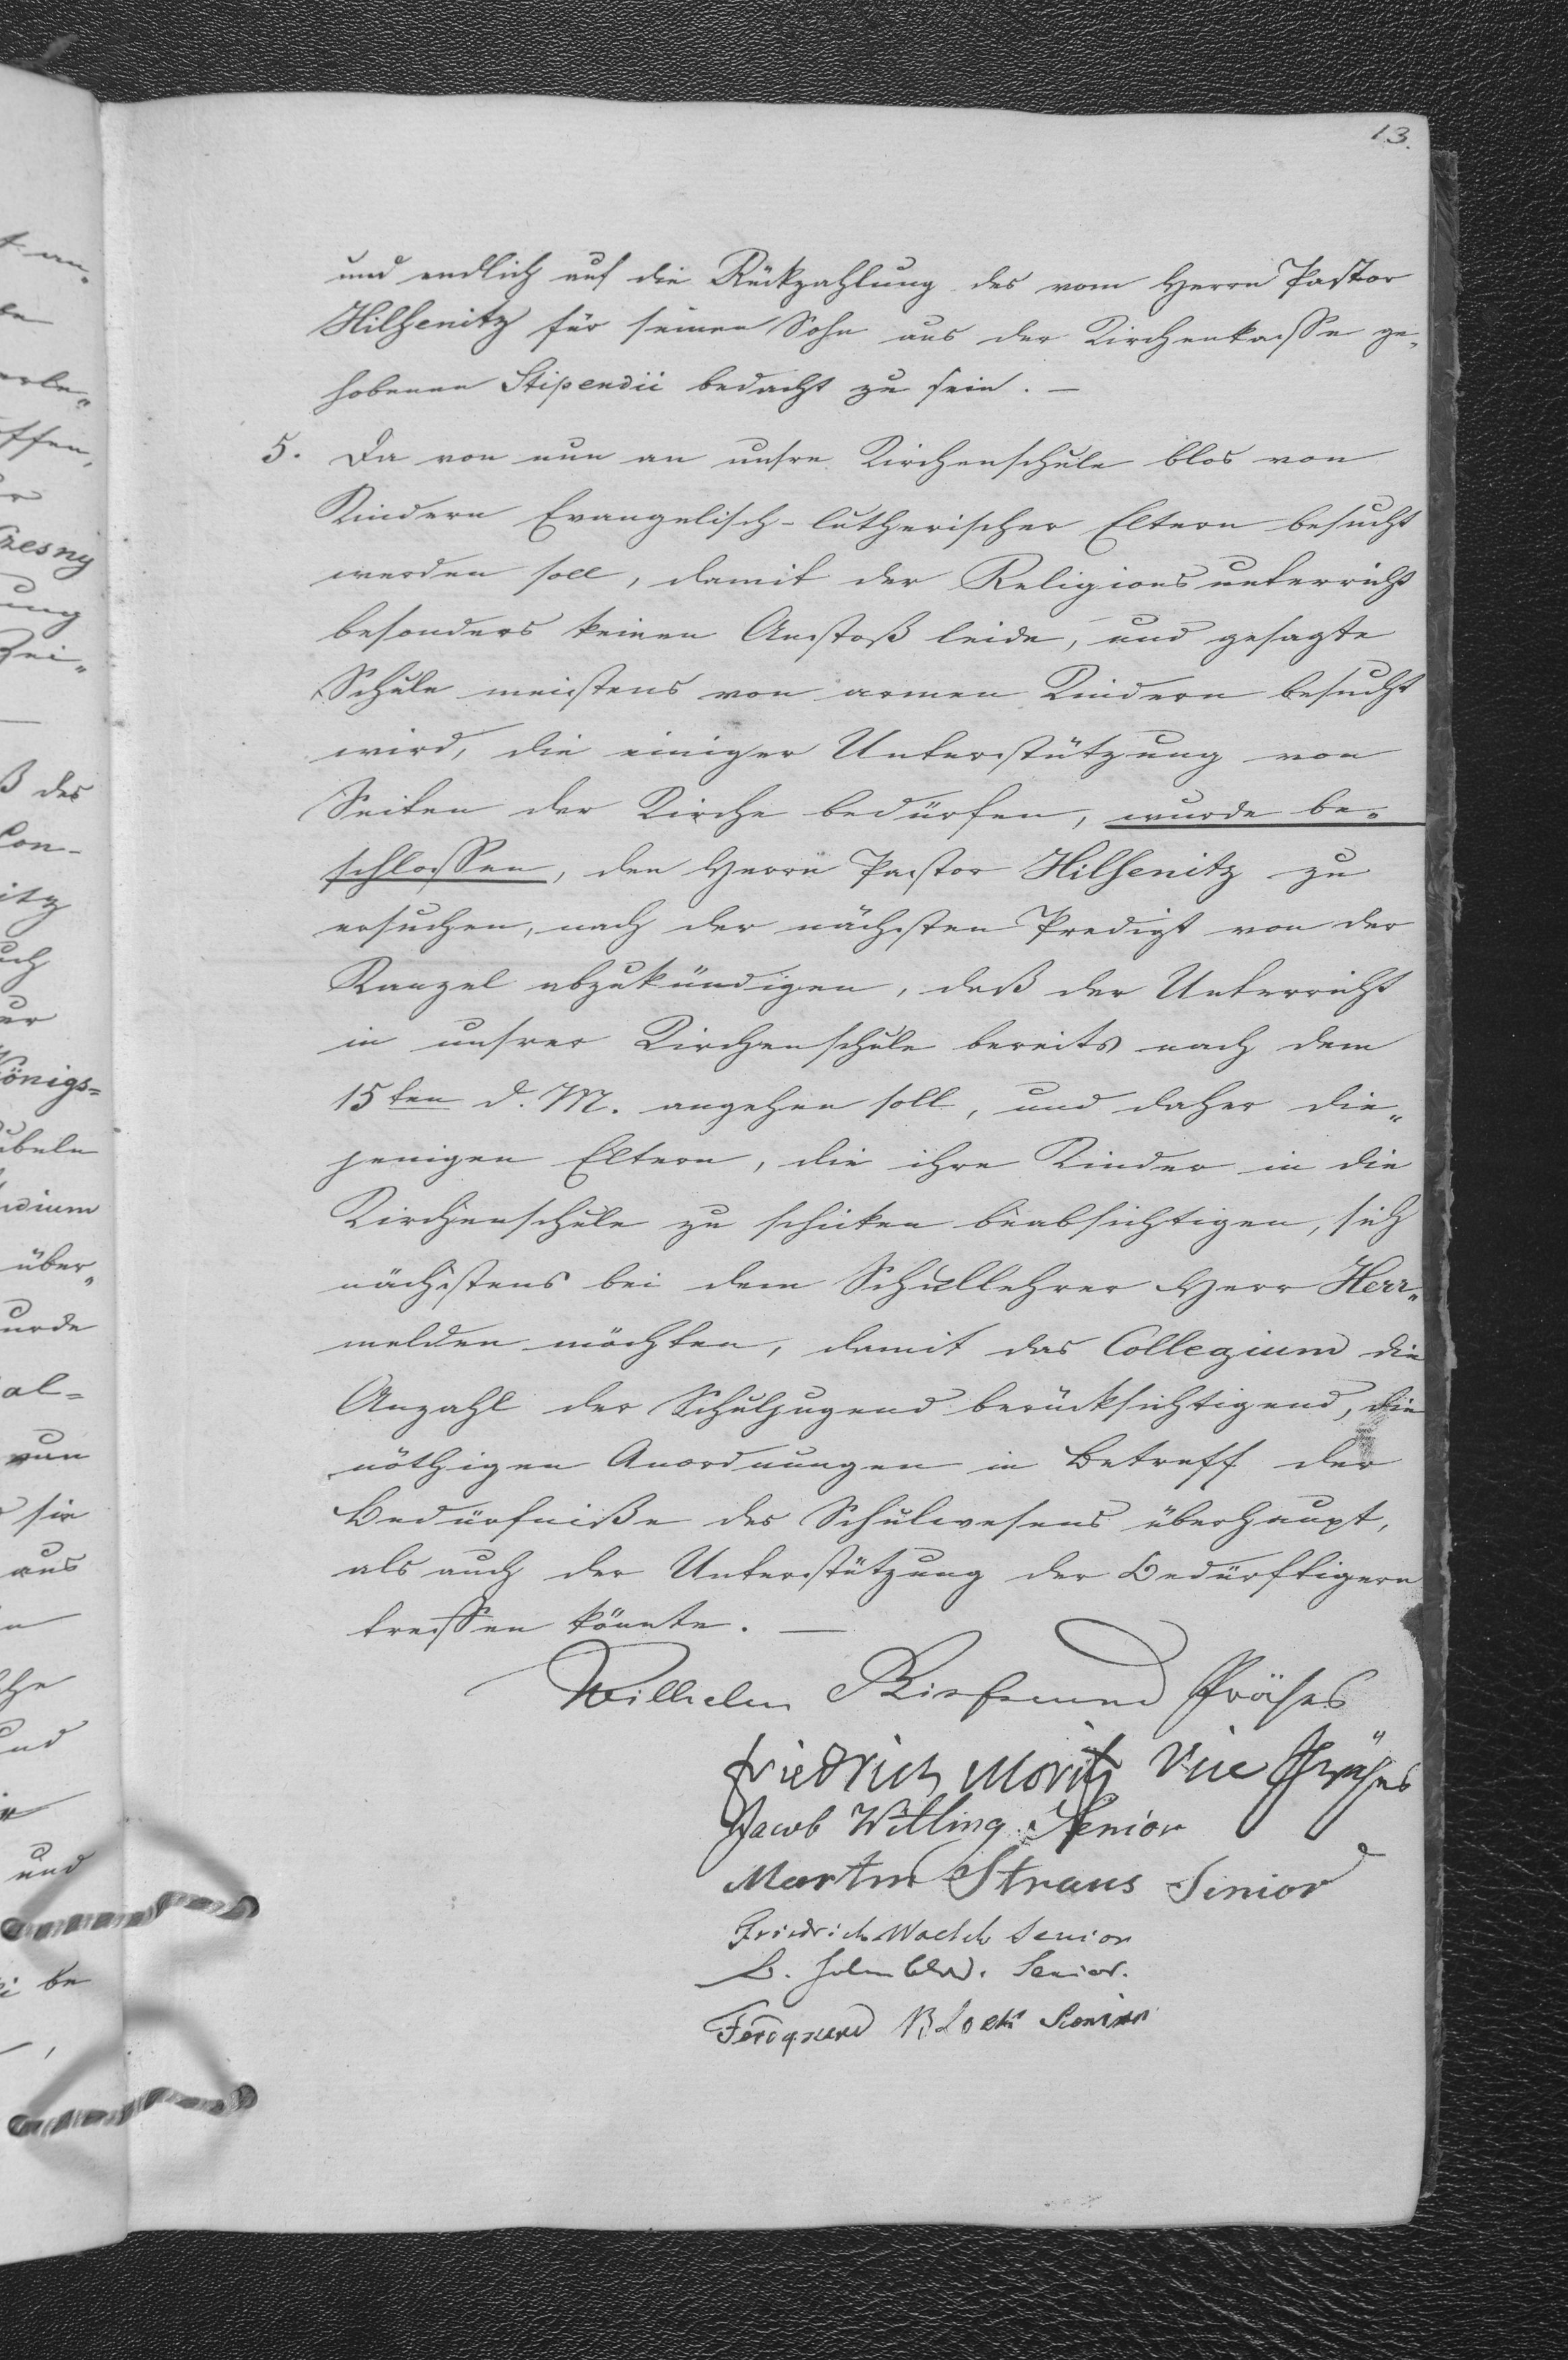 13.
und endlich auf die Rükzahlung des vom Herrn Pastor
Hilsenitz für seinen Sohn aus der Kirchenkasse ge„
hobenen Stipendii bedacht zu sein. —
5. Da von nun an unsre Kirchenschule blos von
Kindern Evangelisch-lutherischer Eltern besucht
werden soll, damit der Religionsunterricht
besonders keinen Anstoß leide, und gesagte
Schule meistens von armen Kindern besucht
wird, die einiger Unterstützung von
Seiten der Kirche bedürfen, wurde be„
schlossen, den Herrn Pastor Hilsenitz zu
ersuchen, nach der nächsten Predigt von der
Kanzel abzukündigen, daß der Unterricht
in unsrer Kirchenschule bereits nach dem
15ten d. M. angehen soll, und daher die„
jenigen Eltern, die ihre Kinder in die
Kirchenschule zu schicken beabsichtigen, sich
nächstens bei dem Schullehrer Herr Herr„
melden möchten, damit das Collegium die
Anzahl der Schuljugend berücksichtigend, die
nöthigen Anordnungen in Betreff der
Bedürfniße des Schulwesens überhaupt,
als auch der Unterstützung der Bedürftigern
treffen könnte. —
Wilhelm Präses
Friedrich Moritz Vice Präses
Jacob Witling Senior
Martin Straus Senior
Friedrich Senior
Senior.
Ferdinand Block Senior
Czesny
ung
ß des
Con-
itz
Königs=
über„
al=
sie
aus
und
und